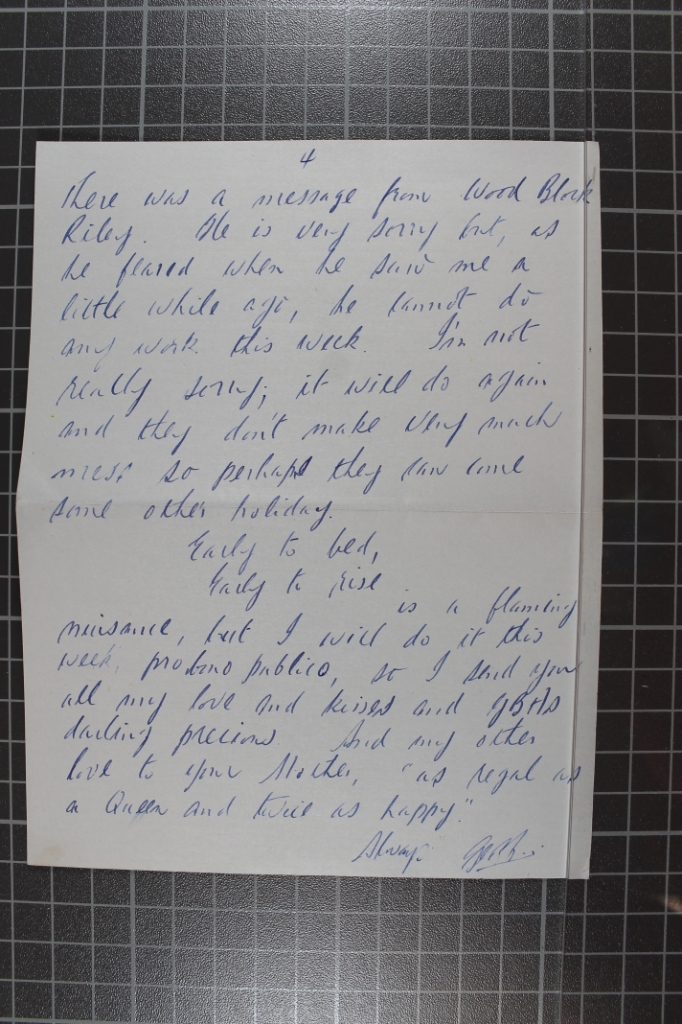 4
there was a message from Wood Block
Riley. He is very sorry but, as
he feared when he saw me a
little while ago, he cannot do
my work this week. I'm not
really sorry; it will do again
and they don't make very much
mess so perhaps they can come
some other holiday.
Early to bed,
Early to rise
is a flaming
nuisance, but I will do it this
week, pro bono publico, so I send you
all my love and kisses and GBHs
darling precious. And my other
love to your Mother, "as regal as
a Queen and twice as happy."
Always